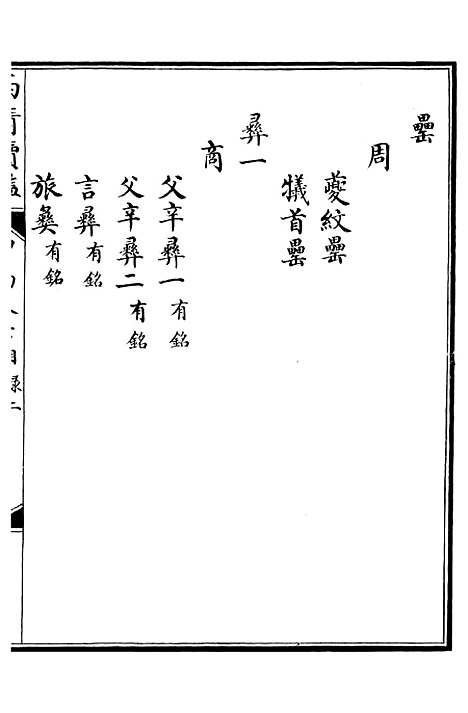 罍
周
夔紋罍
犧首罍
彝一
商
父辛彝一有銘
父辛彝二有銘
言彝有銘
旅彝有銘
西清續鑑
目錄二